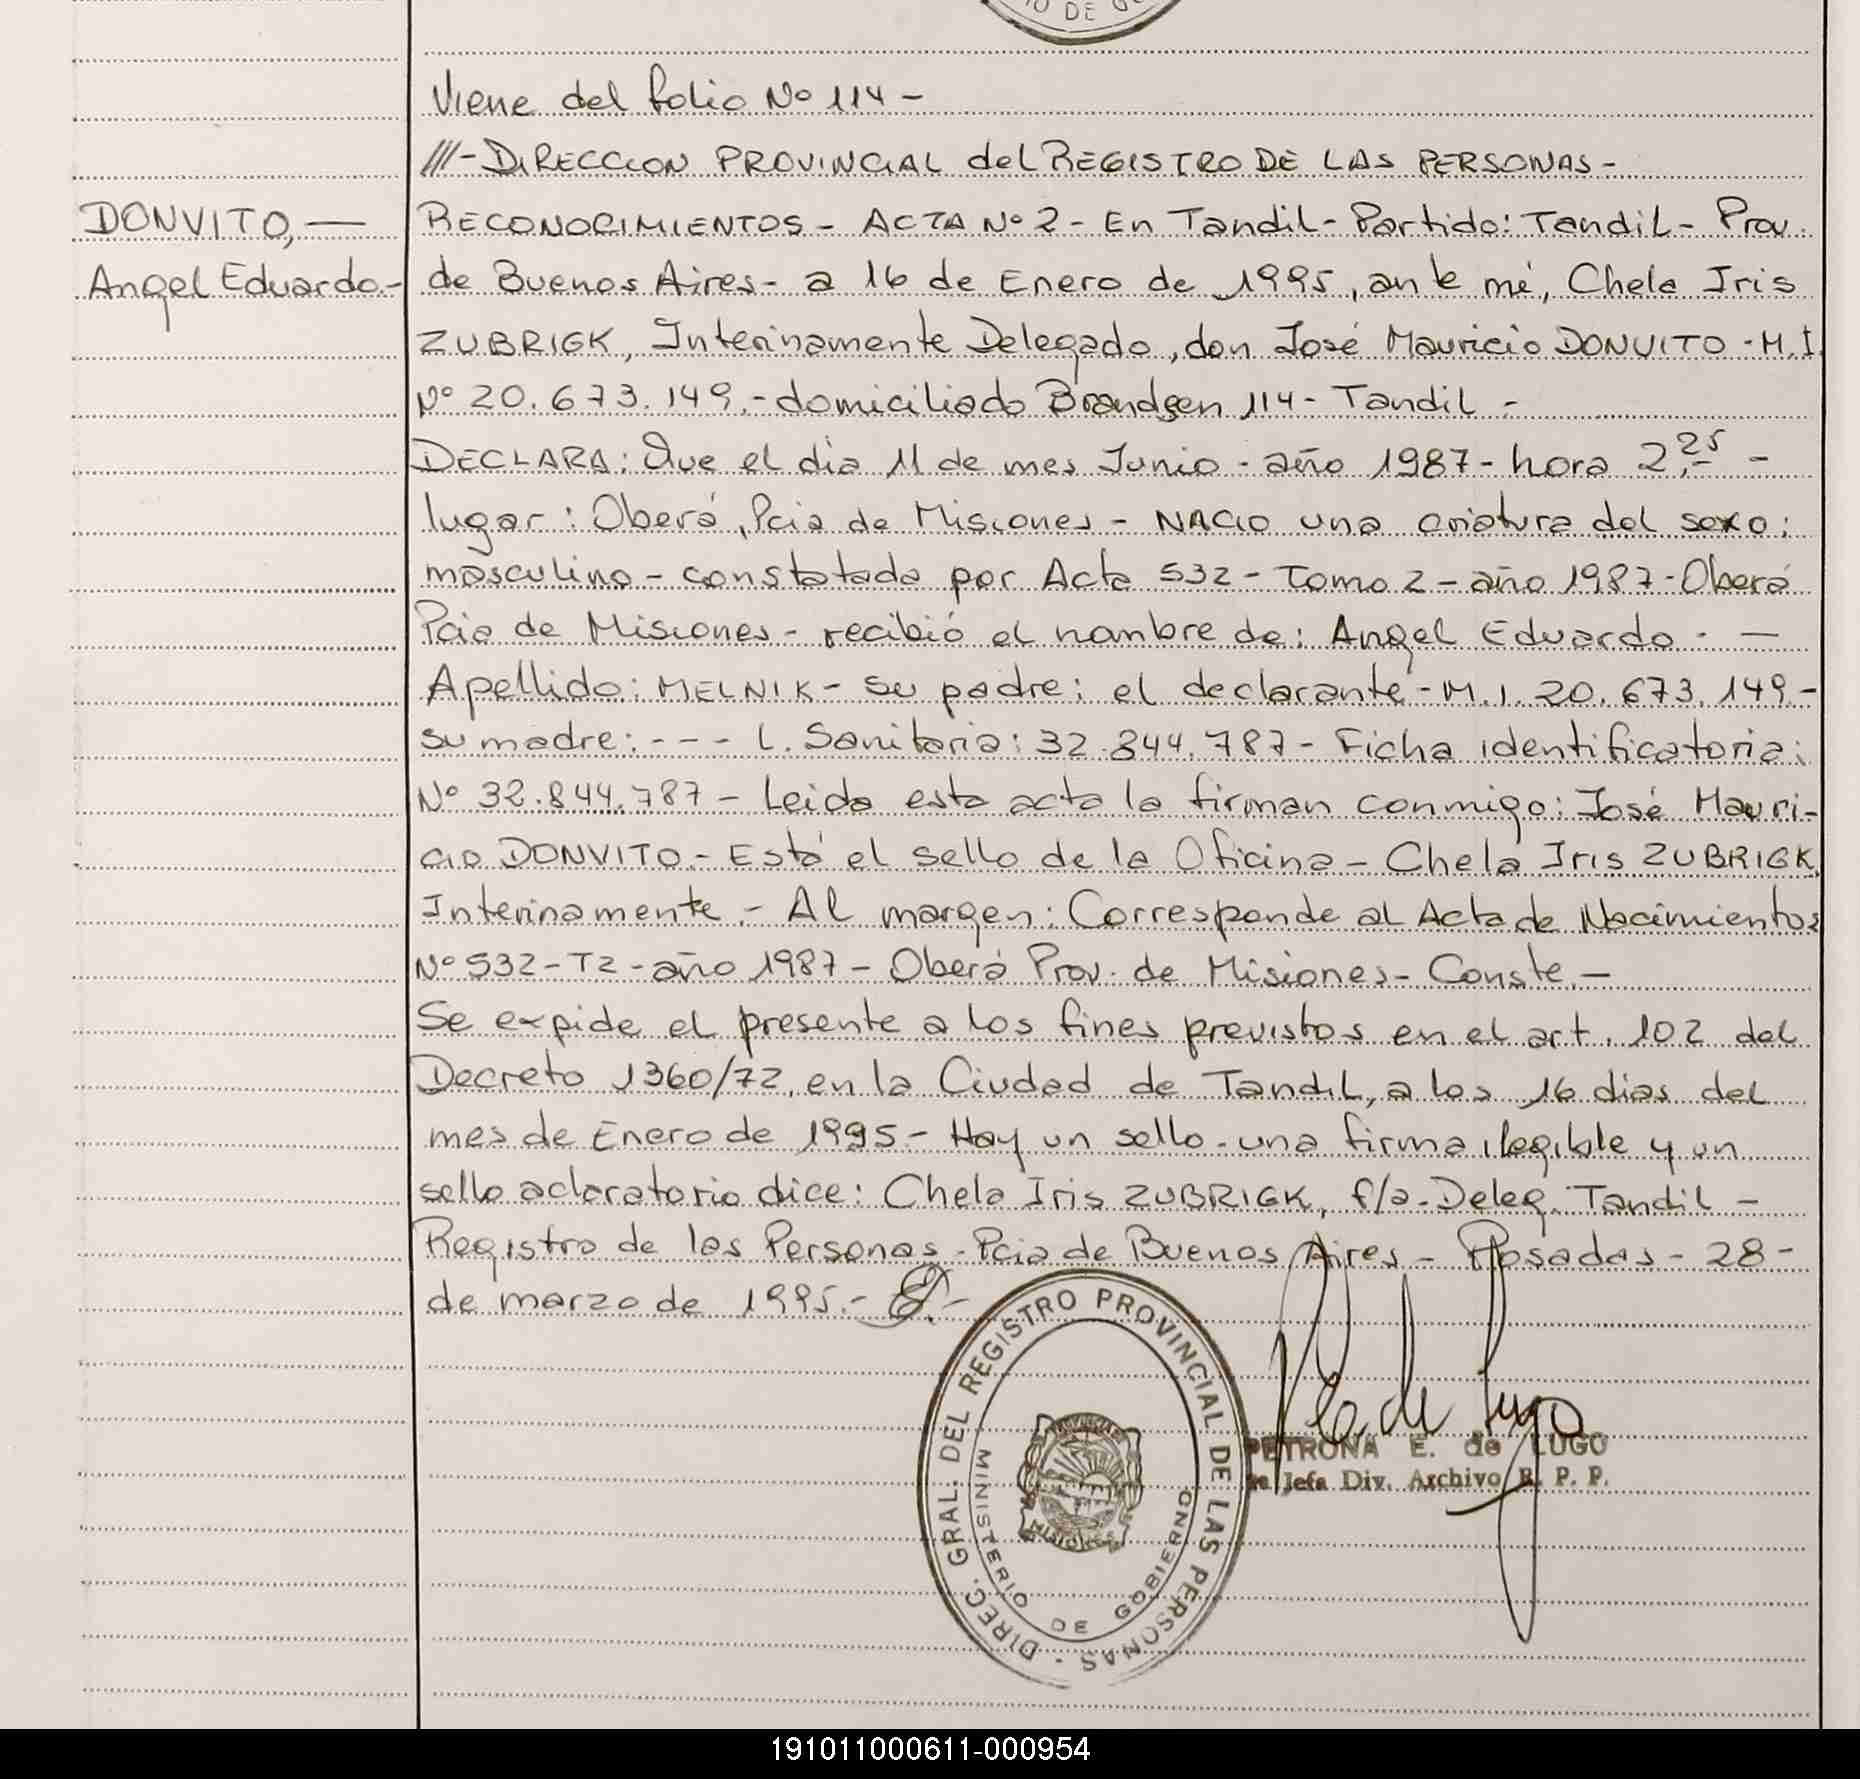 IO DE GO
Viene del folio Nº 114 -
///- DIRECCION PROVINCIAL del REGISTRO DE LAS PERSONAS -
DONVITO, —
RECONOCIMIENTOS - ACTA Nº 2 - En Tandil - Partido: Tandil - Prov.
Angel Eduardo.-
de Buenos Aires - a 16 de Enero de 1995, ante mí, Chela Iris
ZUBRIGK, Interinamente Delegado, don José Mauricio DONVITO - M.I.
Nº 20.673.149.- domiciliado Brandsen 114 - Tandil -
DECLARA: Que el dia 11 de mes Junio - año 1987 - hora 2,25 -
lugar: Oberá, Pcia de Misiones - NACIO una criatura del sexo:
masculino - constatada por Acta 532 - Tomo 2 - año 1987 - Oberá
Pcia de Misiones - recibió el nombre de: Angel Eduardo - —
Apellido: MELNIK - su padre: el declarante - M.I. 20.673.149 -
su madre: - - - L. Sanitaria: 32.844.787 - Ficha identificatoria:
Nº 32.844.787 - Leida esta acta la firman conmigo: José Mauri-
cio DONVITO - Está el sello de la Oficina - Chela Iris ZUBRIGK,
Interinamente - Al margen: Corresponde al Acta de Nacimientos
Nº 532 - T2 - año 1987 - Oberá Prov. de Misiones - Conste. -
Se expide el presente a los fines previstos en el art. 102 del
Decreto 1360/72, en la Ciudad de Tandil, a los 16 dias del
mes de Enero de 1995 - Hay un sello - una firma ilegible y un
sello aclaratorio dice: Chela Iris ZUBRIGK, f/a - Deleg. Tandil -
Registro de las Personas - Pcia de Buenos Aires - Posadas - 28 -
de marzo de 1995.-
DIREC. GRAL. DEL REGISTRO PROVINCIAL DE LAS PERSONAS
MINISTERIO DE GOBIERNO
PROVINCIA
MISIONES
de Lugo
PETRONA E. de LUGO
Jefa Div. Archivo R. P. P.
191011000611-000954